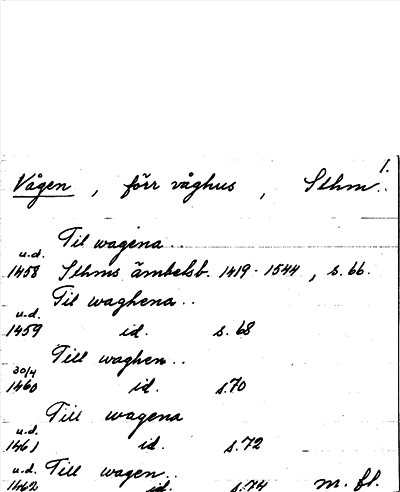 1.
Vågen , förr våghus , Sthm.
Til wagena..
u.d.
1458 Sthms ämbetsb. 1419-1544 , s. 66.
Til waghena..
u.d.
1459 id. s. 68
Till waghen..
30/4
1460 id. s. 70
Till wagena
u.d.
1461 id. s. 72
u.d. Till wagen..
1462 id. s. 74 m. fl.